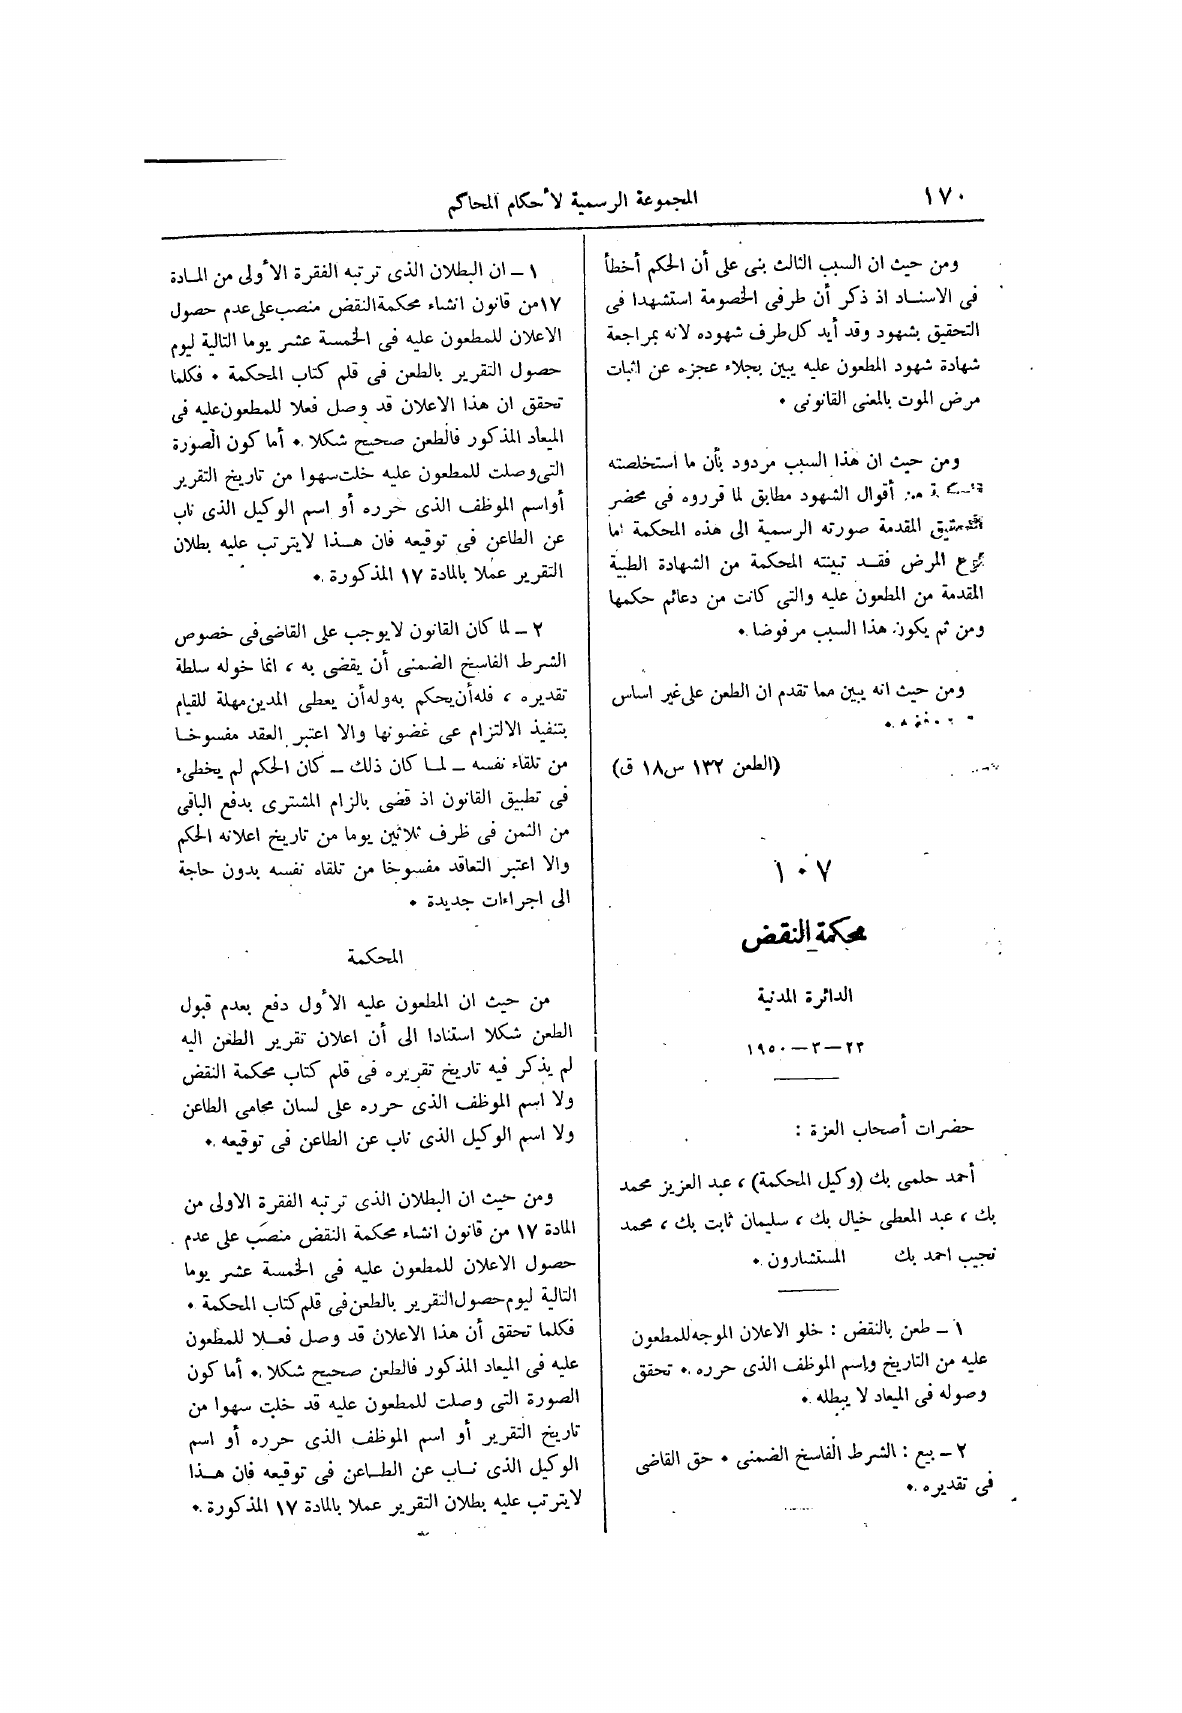 ١٧٠
المجموعة الرسمية لأحكام المحاكم
ومن حيث ان السبب الثالث بنى على أن الحكم أخطأ
فى الاسناد اذ ذكر أن طرفى الخصومة استشهدا فى
التحقيق بشهود وقد أيد كل طرف شهوده لانه بمراجعة
شهادة شهود المطعون عليه يبين بجلاء عجزه عن اثبات
مرض الموت بالمعنى القانونى .
ومن حيث ان هذا السبب مردود بأن ما استخلصته
من أقوال الشهود مطابق لما قرروه فى محضر
المقدمة صورته الرسمية الى هذه المحكمة اما
المرض فقد تبينته المحكمة من الشهادة الطبية
المقدمة من المطعون عليه والتى كانت من دعائم حكمها
ومن ثم يكون هذا السبب مرفوضا .
ومن حيث انه يبين مما تقدم ان الطعن على غير اساس
(الطعن ١٣٢ س ١٨ ق)
١٠٧
محكمة النقض
الدائرة المدنية
٢٣-٣-١٩٥٠
حضرات أصحاب العزة :
أحمد حلمى بك (وكيل المحكمة) ، عبد العزيز محمد
بك ، عبد المعطى خيال بك ، سليمان ثابت بك ، محمد
نجيب احمد بك المستشارون .
١ – طعن بالنقض : خلو الاعلان الموجه للمطعون
عليه من التاريخ وإسم الموظف الذى حرره . تحقق
وصوله فى الميعاد لا يبطله .
٢ – بيع : الشرط الفاسخ الضمنى . حق القاضى
فى تقديره .
١ – ان البطلان الذى ترتبه الفقرة الأولى من المادة
١٧ من قانون انشاء محكمة النقض منصب على عدم حصول
الاعلان للمطعون عليه فى الخمسة عشر يوما التالية ليوم
حصول التقرير بالطعن فى قلم كتاب المحكمة . فكلما
تحقق ان هذا الاعلان قد وصل فعلا للمطعون عليه فى
الميعاد المذكور فالطعن صحيح شكلا . أما كون الصورة
التى وصلت للمطعون عليه خلت سهوا من تاريخ التقرير
أو اسم الموظف الذى حرره أو اسم الوكيل الذى ناب
عن الطاعن فى توقيعه فان هذا لا يترتب عليه بطلان
التقرير عملا بالمادة ١٧ المذكورة .
٢ – لما كان القانون لا يوجب على القاضى فى خصوص
الشرط الفاسخ الضمنى أن يقضى به ، انما خوله سلطة
تقديره ، فله أن يحكم به وله أن يعطى المدين مهلة للقيام
بتنفيذ الالتزام عى غضونها والا اعتبر العقد مفسوخا
من تلقاء نفسه – لما كان ذلك – كان الحكم لم يخطىء
فى تطبيق القانون اذ قضى بالزام المشترى بدفع الباقى
من الثمن فى ظرف ثلاثين يوما من تاريخ اعلانه الحكم
والا اعتبر التعاقد مفسوخا من تلقاه نفسه بدون حاجة
الى اجراءات جديدة .
المحكمة
من حيث ان المطعون عليه الأول دفع بعدم قبول
الطعن شكلا استنادا الى أن اعلان تقرير الطعن اليه
لم يذكر فيه تاريخ تقريره فى قلم كتاب محكمة النقض
ولا اسم الموظف الذى حرره على لسان محامى الطاعن
ولا اسم الوكيل الذى ناب عن الطاعن فى توقيعه .
ومن حيث ان البطلان الذى ترتبه الفقرة الاولى من
المادة ١٧ من قانون انشاء محكمة النقض منصب على عدم
حصول الاعلان للمطعون عليه فى الخمسة عشر يوما
التالية ليوم حصول التقرير بالطعن فى قلم كتاب المحكمة .
فكلما تحقق أن هذا الاعلان قد وصل فعلا للمطعون
عليه فى الميعاد المذكور فالطعن صحيح شكلا . أما كون
الصورة التى وصلت للمطعون عليه قد خلت سهوا من
تاريخ التقرير أو اسم الموظف الذى حرره أو اسم
الوكيل الذى ناب عن الطاعن فى توقيعه فان هذا
لا يترتب عليه بطلان التقرير عملا بالمادة ١٧ المذكورة .